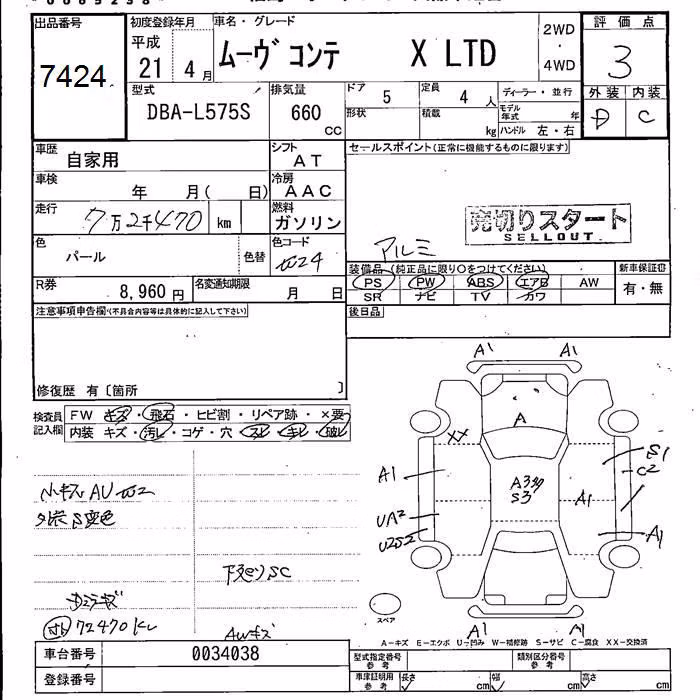 出品番号
7424
初度登録年月
平成
21 4月
車名・グレード
ムーヴ コンテ X LTD
2WD
4WD
評価点
3
外装 内装
D C
型式
DBA-L575S
排気量
660
CC
ドア
5
定員
4 人
形状
積載
kg
ディーラー・並行
モデル年式 年
ハンドル 左・右
車歴
自家用
シフト
AT
車検
年 月( 日)
冷房
AAC
走行
7万2千470 km
燃料
ガソリン
色
パール
色替
色コード
W24
R券
8,960円
名変通知期限
月 日
セールスポイント(正常に機能するものに限ります)
売切りスタート
SELLOUT.
アルミ
装備品(純正品に限り○をつけてください)
新車保証書
PS PW ABS エアB AW
SR ナビ TV カワ
有・無
後日品
注意事項申告欄(不具合内容等は具体的に記入して下さい)
修復歴 有〔箇所 〕
検査員記入欄
FW キズ・飛石・ヒビ割・リペア跡・×要
内装 キズ・汚レ・コゲ・穴・スレ・キレ・破レ
小キズ AU W2
下廻りSC
72470km
AWキズ
A1 A1
A
XX
S1
C2
A1
A3
S3
A1
UA2
U2S2
A1
スペア
A1 A1
A-キズ E-エクボ U-凹み W-補修跡 S-サビ C-腐食 XX-交換済
車台番号
0034038
登録番号
型式指定番号
参考
類別区分番号
参考
車庫証明用
参考
長さ cm 幅 cm 高さ cm